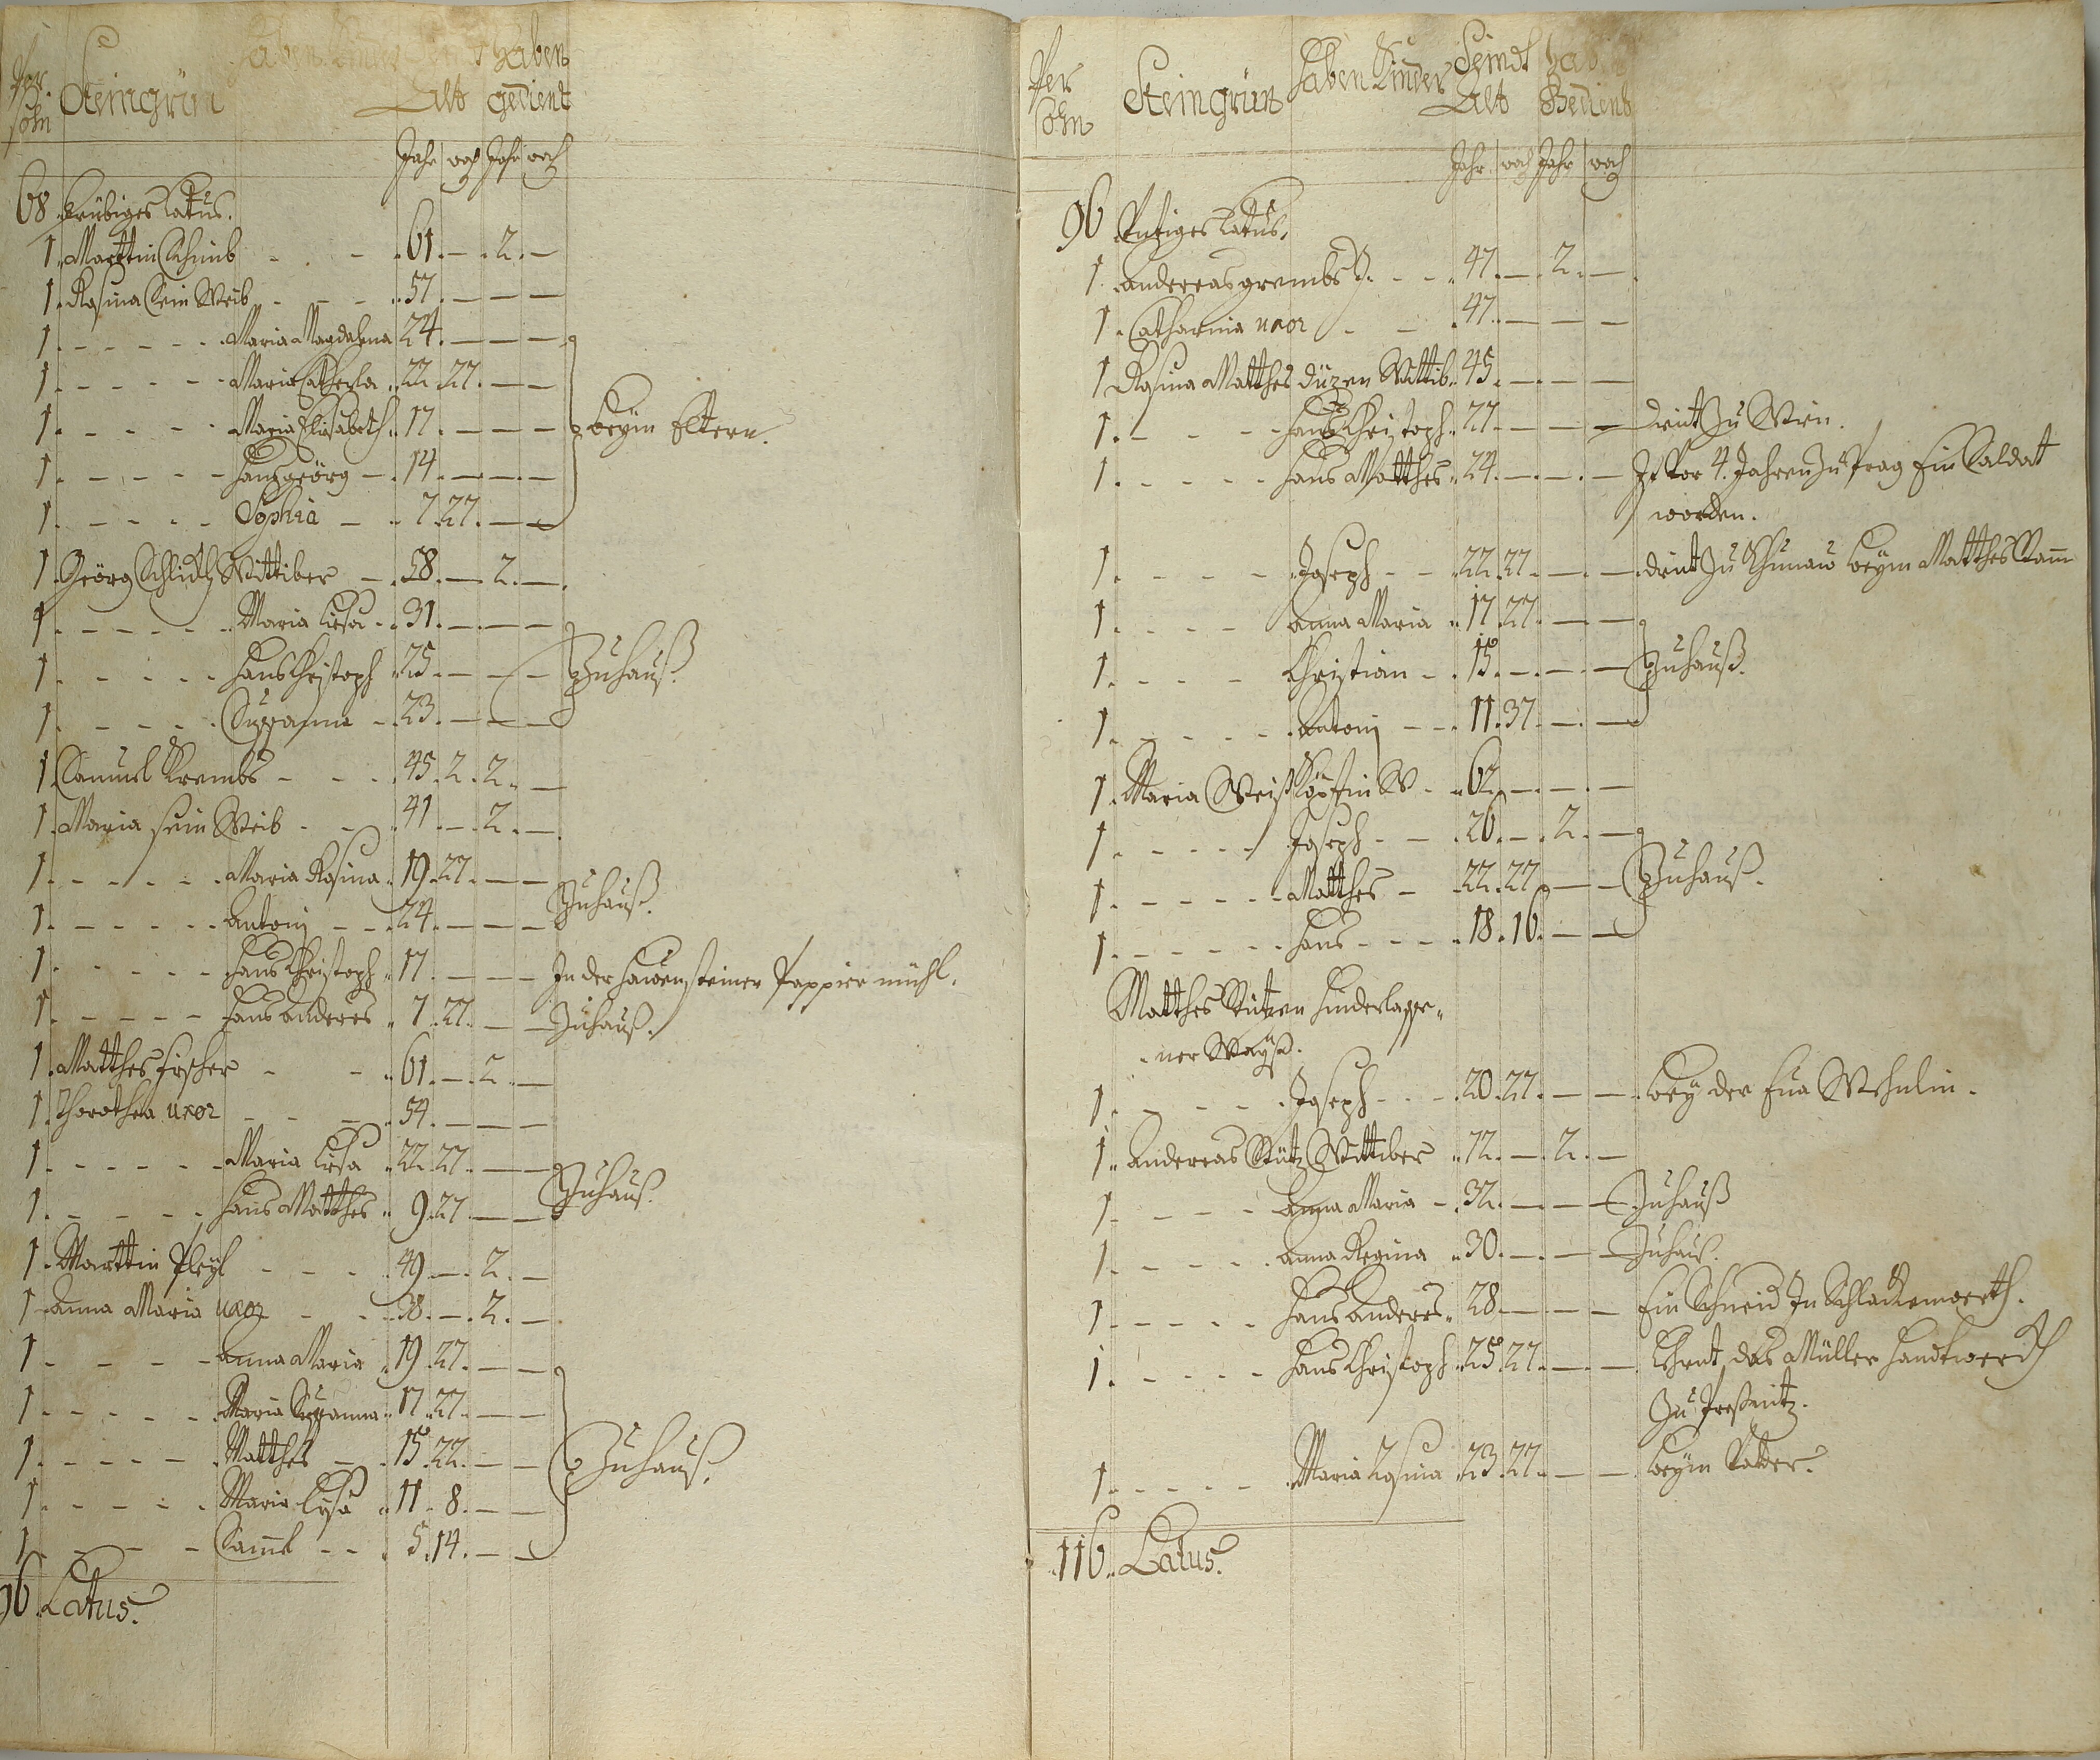 Per
sohn
Steingrün
haben Kinder
Seindt Alt
haben gedient
Jahr woch Jahr woch
68 Herübiges Latus.
1. Marttin Schmid - - - 61. — 2. —
1. Rosina Sein Weib - - - 57. — — —
1. - - - - - Maria Magdalena 24. — — —
1. - - - - - Maria 22. 27. — —
1. - - - - - Maria Elisabeth 17. — — —
beÿm Eltern.
1. - - - - - Hans georg — 14. — — —
1. - - - - - Sophia — 7. 27. — —
1. Geörg Schlick Wittiber — 58. — 2. —
1. - - - - - Maria Liesa - 31. — — —
1. - - - - - Hans Christoph 25. — — —
Zuhauß.
1. - - - - - Susanna - 23. — — —
1. Samuel Krembs - - - 45. 2. 2. —
1. Maria sein Weib - - - 41. — 2. —
1. - - - - - Maria Rosina 19. 27. — —
Zuhauß.
1. - - - - - Antonj - - 24. — — —
1. - - - - - Hans Christoph 17. — — — In der Hauensteiner Pappier mühl.
1. - - - - - Hans Anderes 7. 27. — — Zuhauß.
1. Matthes Fischer - - 61. — 2. —
1. Dorothea uxor - - - 54. — — —
1. - - - - - Maria Liesa 22. 27. — —
Zuhauß.
1. - - - - - Hans Matthes 9. 27. — —
1. Marttin Pleÿl - - - 49. — 2. —
1. Anna Maria uxor - - 38. — 2. —
1. - - - - - Anna Maria 19. 27. — —
1. - - - - - Maria Susanna 17. 27. — —
1. - - - - - Matthes — 15. 22. — —
Zuhauß.
1. - - - - - Maria Lisa 11. 8. — —
1. - - - - - Samel - - 5. 14. — —
96 Latus.
Per
sohn
Steingrün
haben Kinder
Seindt Alt
hab Gedient
Jahr woch Jahr woch
96 Latus.
1. Andereas grembs - - - 47. — 2. —
1. Catharina uxor - - 47. — — —
1. Rosina Matthes Wittib 45. — — —
1. - - - - Hans Christoph 27. — — — dient Zu Wien.
1. - - - - Hans Matthes 24. — — — Ist Vor 4. Jahren Zu Prag Ein Soldat
worden.
1. - - - - Joseph - - 22. 27. — — dient Zu beÿm Matthes
1. - - - - Anna Maria 17. 27. — —
1. - - - - Christian - 15. — — — Zuhauß.
1. - - - - Antonj - - 11. 37. — —
1. Maria W - 62. — — —
1. - - - - Joseph - - 26. — 2. —
1. - - - - Matthes - 22. 27. — — Zuhauß.
1. - - - - Hans - - - 18. 16. — —
Matthes Stützen hinderlasse-
ner Waÿß.
1. - - - - Joseph - - 20. 27. — — beÿ der Eua
1. Andereas Stütz Wittiber 72. — 2. —
1. - - - - Anna Maria - 32. — — — Zuhauß
1. - - - - Anna Regina 30. — — — Zuhauß.
1. - - - - Hans Anderes 28 — — — Ein Schmid In Schlackenwerth.
1. - - - - Hans Christoph 25. 27. — — Lehrnt das Müller Handtwerck
Zu Preßnitz.
1. - - - - Maria Rosina 23. 27. — — beÿm Vatter.
116. Latus.